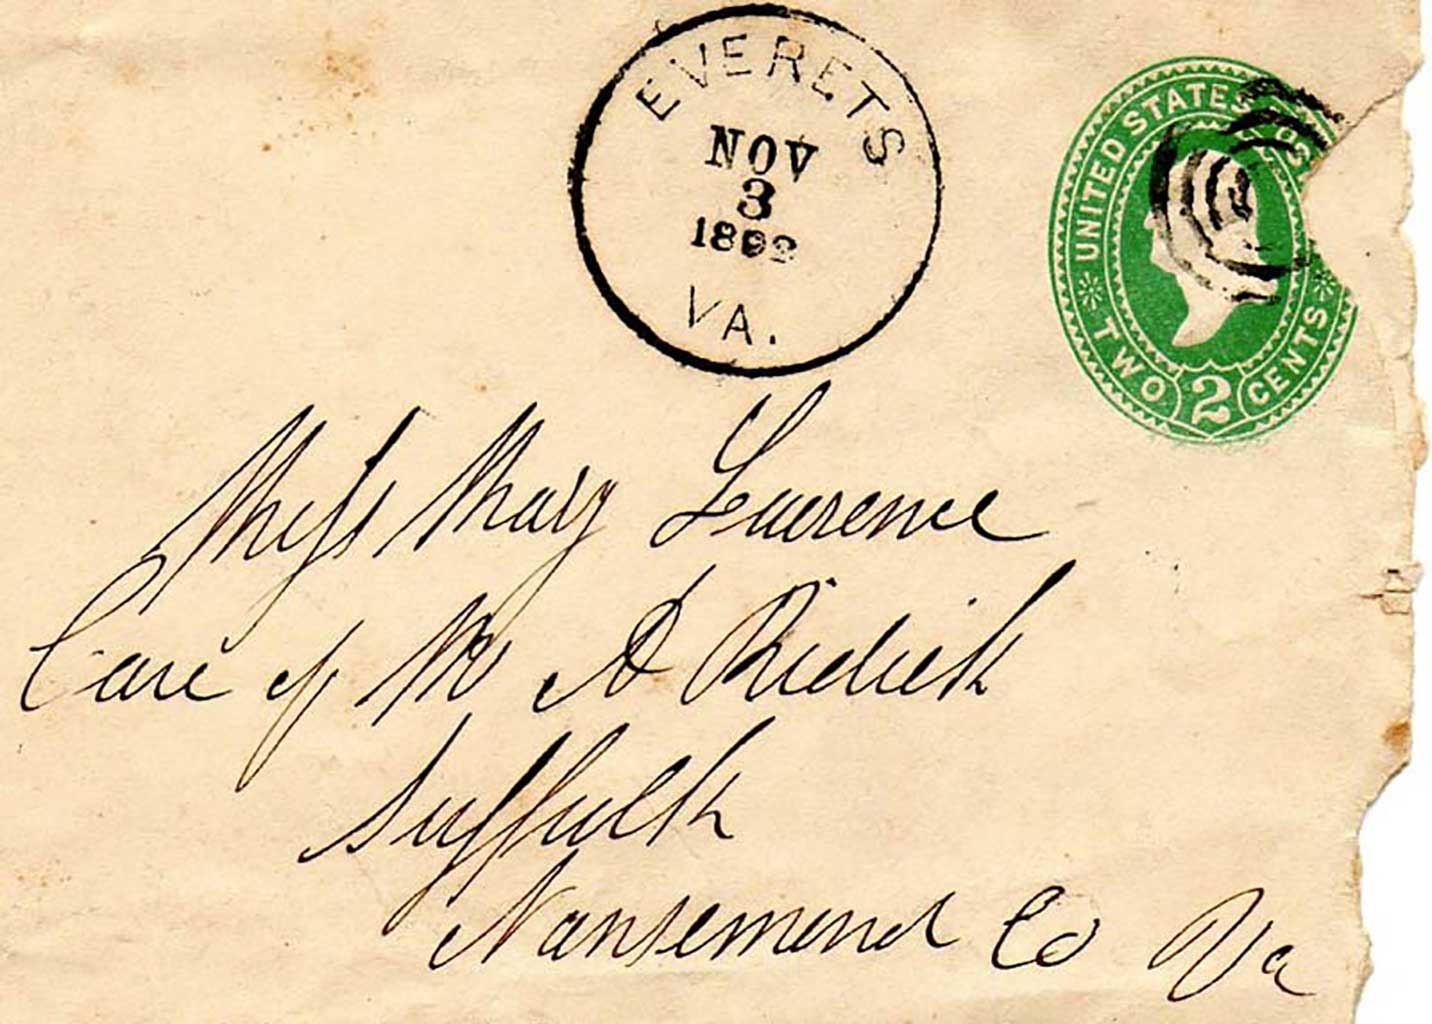 EVERETS
NOV
3
1892
VA.
UNITED STATES
TWO 2 CENTS
Miss Mary Lawrence
Care of Mr A Riddick
Suffolk
Nansemond Co Va